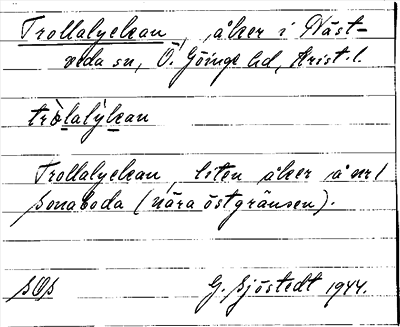 Trollalyckan, åker i Näst-
veda sn, Ö. Göinge hd, Krist. l.
tròlalỳkan
Trollalyckan, liten åker å nr 1
Sonaboda (nära östgränsen).
SOS G. Sjöstedt 1944.